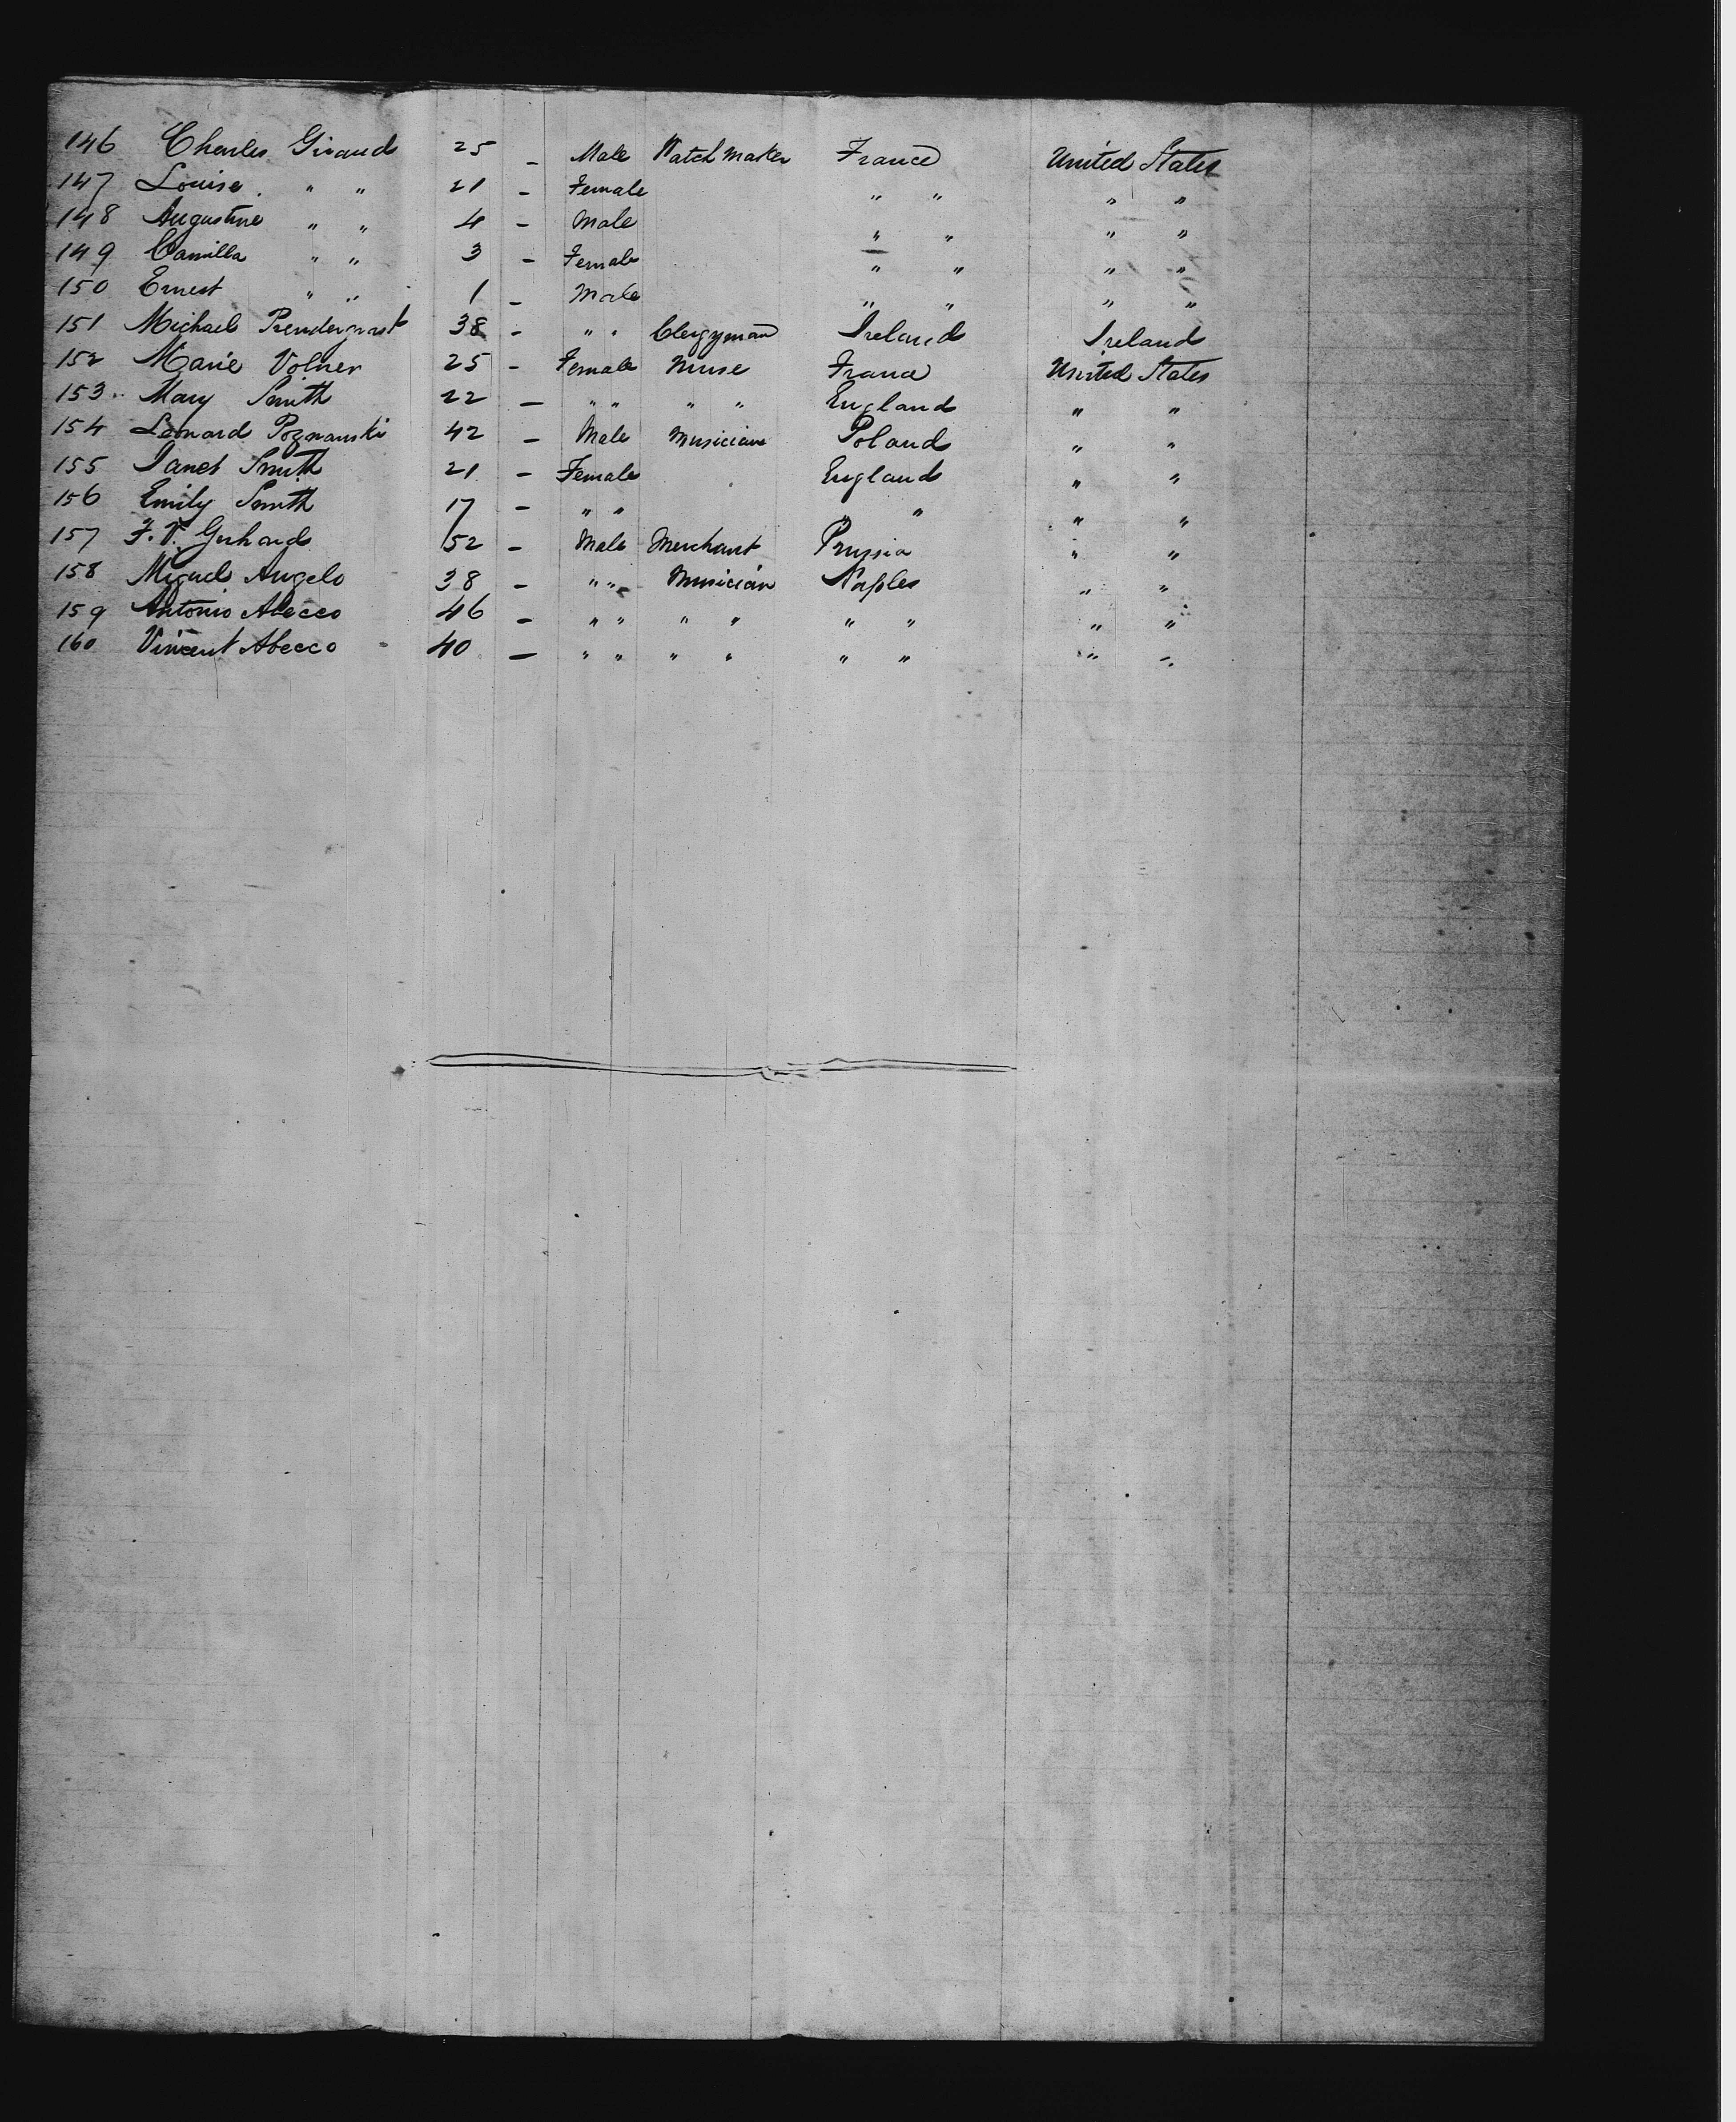 146 Charles Giraud 25 - Male Watch Maker France United States
147 Louise " " 21 - Female " " " "
148 Augustine " " 4 - Male " " " "
149 Camilla " " 3 - Female " " " "
150 Ernest " " 1 - Male " " " "
151 Michael Prendergrast 38 - " " Clergyman Ireland Ireland
152 Marie Volner 25 - Female Nurse France United States
153 Mary Smith 22 - " " " " England " "
154 Leonard Poznanski 42 - Male Musician Poland " "
155 Janet Smith 21 - Female England " "
156 Emily Smith 17 - " " " " " "
157 F. V. Gerhards 52 - Male Merchant Prussia " "
158 Miguel Angelo 38 - " " Musician Naples " "
159 Antonio Abecco 46 - " " " " " " " "
160 Vincent Abecco 40 - " " " " " " " "